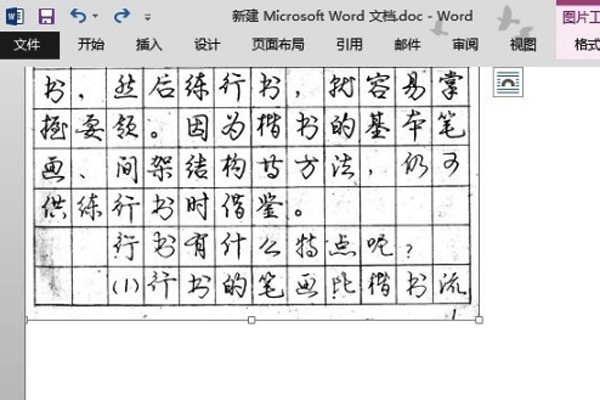 新建 Microsoft Word 文档.doc - Word
图片工
文件 开始 插入 设计 页面布局 引用 邮件 审阅 视图 格式
书，然后练行书，就容易掌
握要领。因为楷书的基本笔
画、间架结构等方法，仍可
供练行书时借鉴。
行书有什么特点呢？
(1)行书的笔画比楷书流
1